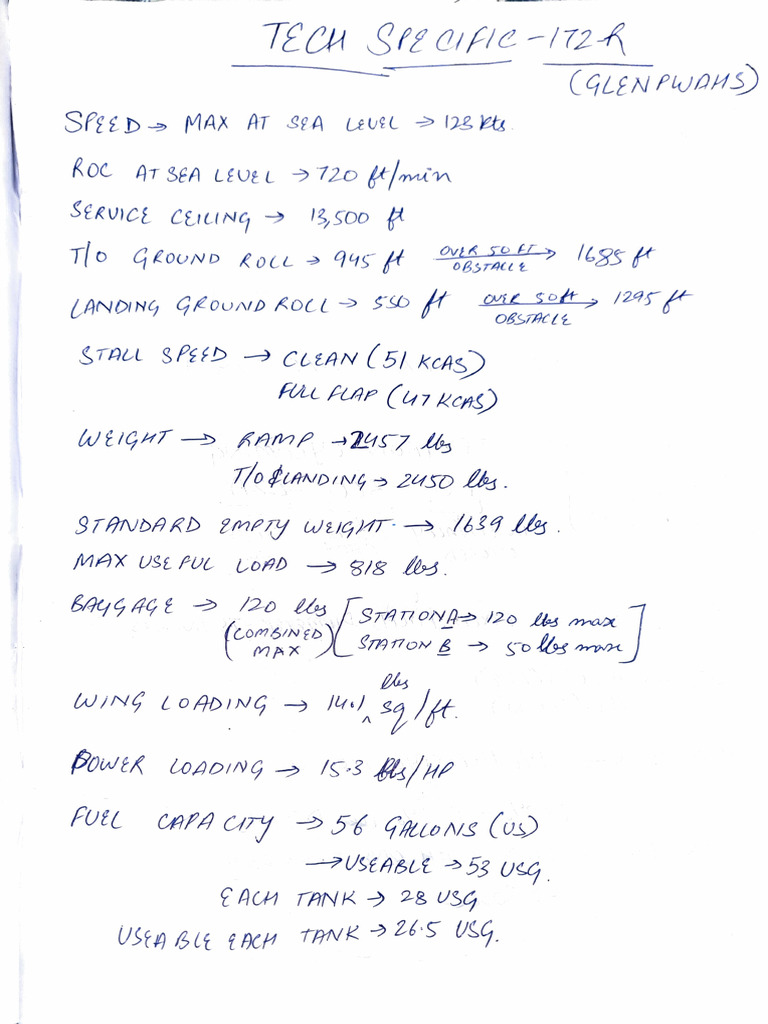 TECH SPECIFIC - 172R
(GLENPWAHS)
SPEED → MAX AT SEA LEVEL → 123 kts.
ROC AT SEA LEVEL → 720 ft/min
SERVICE CEILING → 13,500 ft
T/O GROUND ROLL → 945 ft OVER 50 FT OBSTACLE → 1685 ft
LANDING GROUND ROLL → 550 ft OVER 50 ft OBSTACLE → 1295 ft
STALL SPEED → CLEAN (51 KCAS)
FULL FLAP (47 KCAS)
WEIGHT → RAMP → 2457 lbs
T/O & LANDING → 2450 lbs.
STANDARD EMPTY WEIGHT → 1639 lbs.
MAX USEFUL LOAD → 818 lbs.
BAGGAGE → 120 lbs [STATION A → 120 lbs max
(COMBINED MAX) STATION B → 50 lbs max]
WING LOADING → 14.1 lbs sq/ft.
POWER LOADING → 15.3 lbs/HP
FUEL CAPACITY → 56 GALLONS (US)
→ USEABLE → 53 USG.
EACH TANK → 28 USG
USEABLE EACH TANK → 26.5 USG.